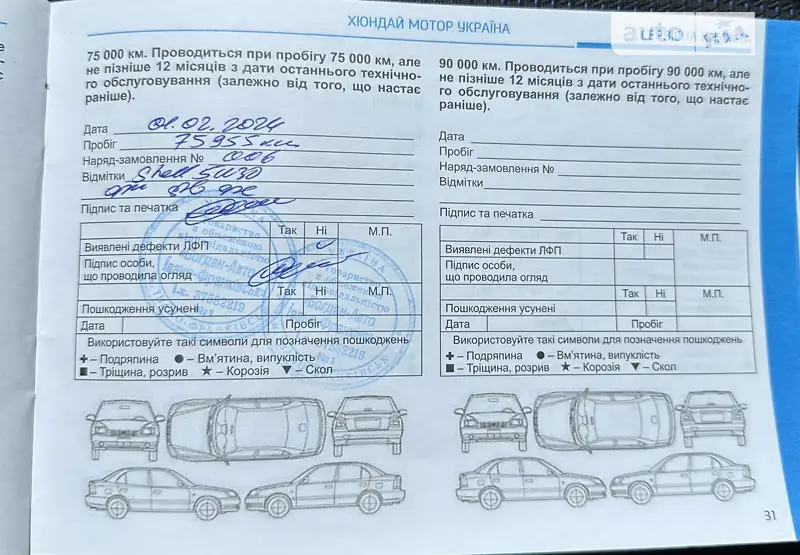 ХЮНДАЙ МОТОР УКРАЇНА
75 000 км. Проводиться при пробігу 75 000 км, але
не пізніше 12 місяців з дати останнього технічно-
го обслуговування (залежно від того, що настає
раніше).
Дата 01.02.2024
Пробіг 75955 км
Наряд-замовлення № 006
Відмітки Shell 5W30
Підпис та печатка
Так Ні М.П.
Виявлені дефекти ЛФП
Підпис особи,
що проводила огляд
Так Ні М.П.
Пошкодження усунені
Дата Пробіг
Використовуйте такі символи для позначення пошкоджень
✚ – Подряпина ● – Вм'ятина, випуклість
■ – Тріщина, розрив ★ – Корозія ▼ – Скол
90 000 км. Проводиться при пробігу 90 000 км, але
не пізніше 12 місяців з дати останнього технічно-
го обслуговування (залежно від того, що настає
раніше).
Дата
Пробіг
Наряд-замовлення №
Відмітки
Підпис та печатка
Так Ні М.П.
Виявлені дефекти ЛФП
Підпис особи,
що проводила огляд
Так Ні М.П.
Пошкодження усунені
Дата Пробіг
Використовуйте такі символи для позначення пошкоджень
✚ – Подряпина ● – Вм'ятина, випуклість
■ – Тріщина, розрив ★ – Корозія ▼ – Скол
31